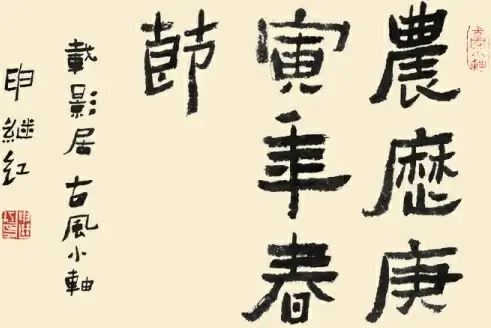 農歷庚
寅年春
節
載影居 古風小軸
申继红